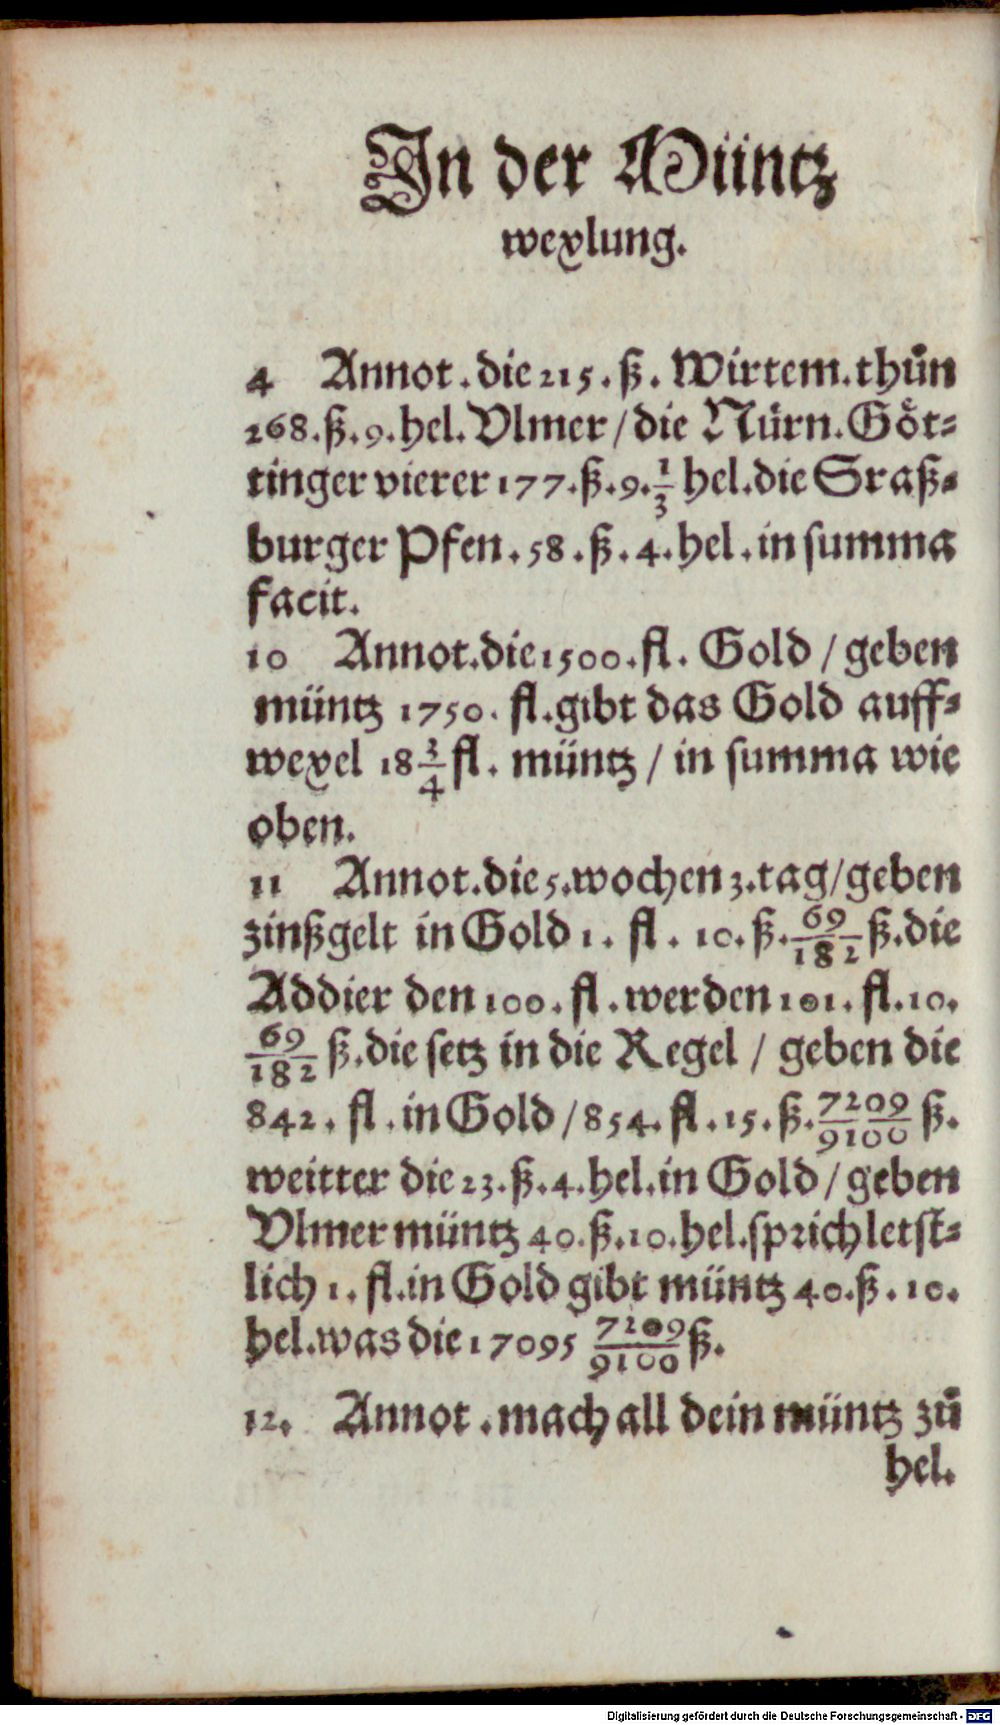 In der Müntz
wexlung.
4 Annot. die 215. ß. Wirtem. thůn
268. ß. 9. hel. Vlmer / die Nürn. Göt⸗
tinger vierer 177. ß. 9. 1/3 hel. die Sraß⸗
burger Pfen. 58. ß. 4. hel. in summa
facit.
10 Annot. die 1500. fl. Gold / geben
müntz 1750. fl. gibt das Gold auff⸗
wexel 18 3/4 fl. müntz / in summa wie
oben.
11 Annot. die 5. wochen 3. tag / geben
zinßgelt in Gold 1. fl. 10. ß. 69/182 ß. die
Addier den 100. fl. werden 101. fl. 10.
69/182 ß. die setz in die Regel / geben die
842. fl. in Gold / 854. fl. 15. ß. 7209/9100 ß.
weitter die 23. ß. 4. hel. in Gold / geben
Vlmer müntz 40. ß. 10. hel. sprich letst⸗
lich 1. fl. in Gold gibt müntz 40. ß. 10.
hel. was die 17095 7209/9100 ß.
12. Annot. mach all dein müntz zů
hel.
Digitalisierung gefördert durch die Deutsche Forschungsgemeinschaft - DFG